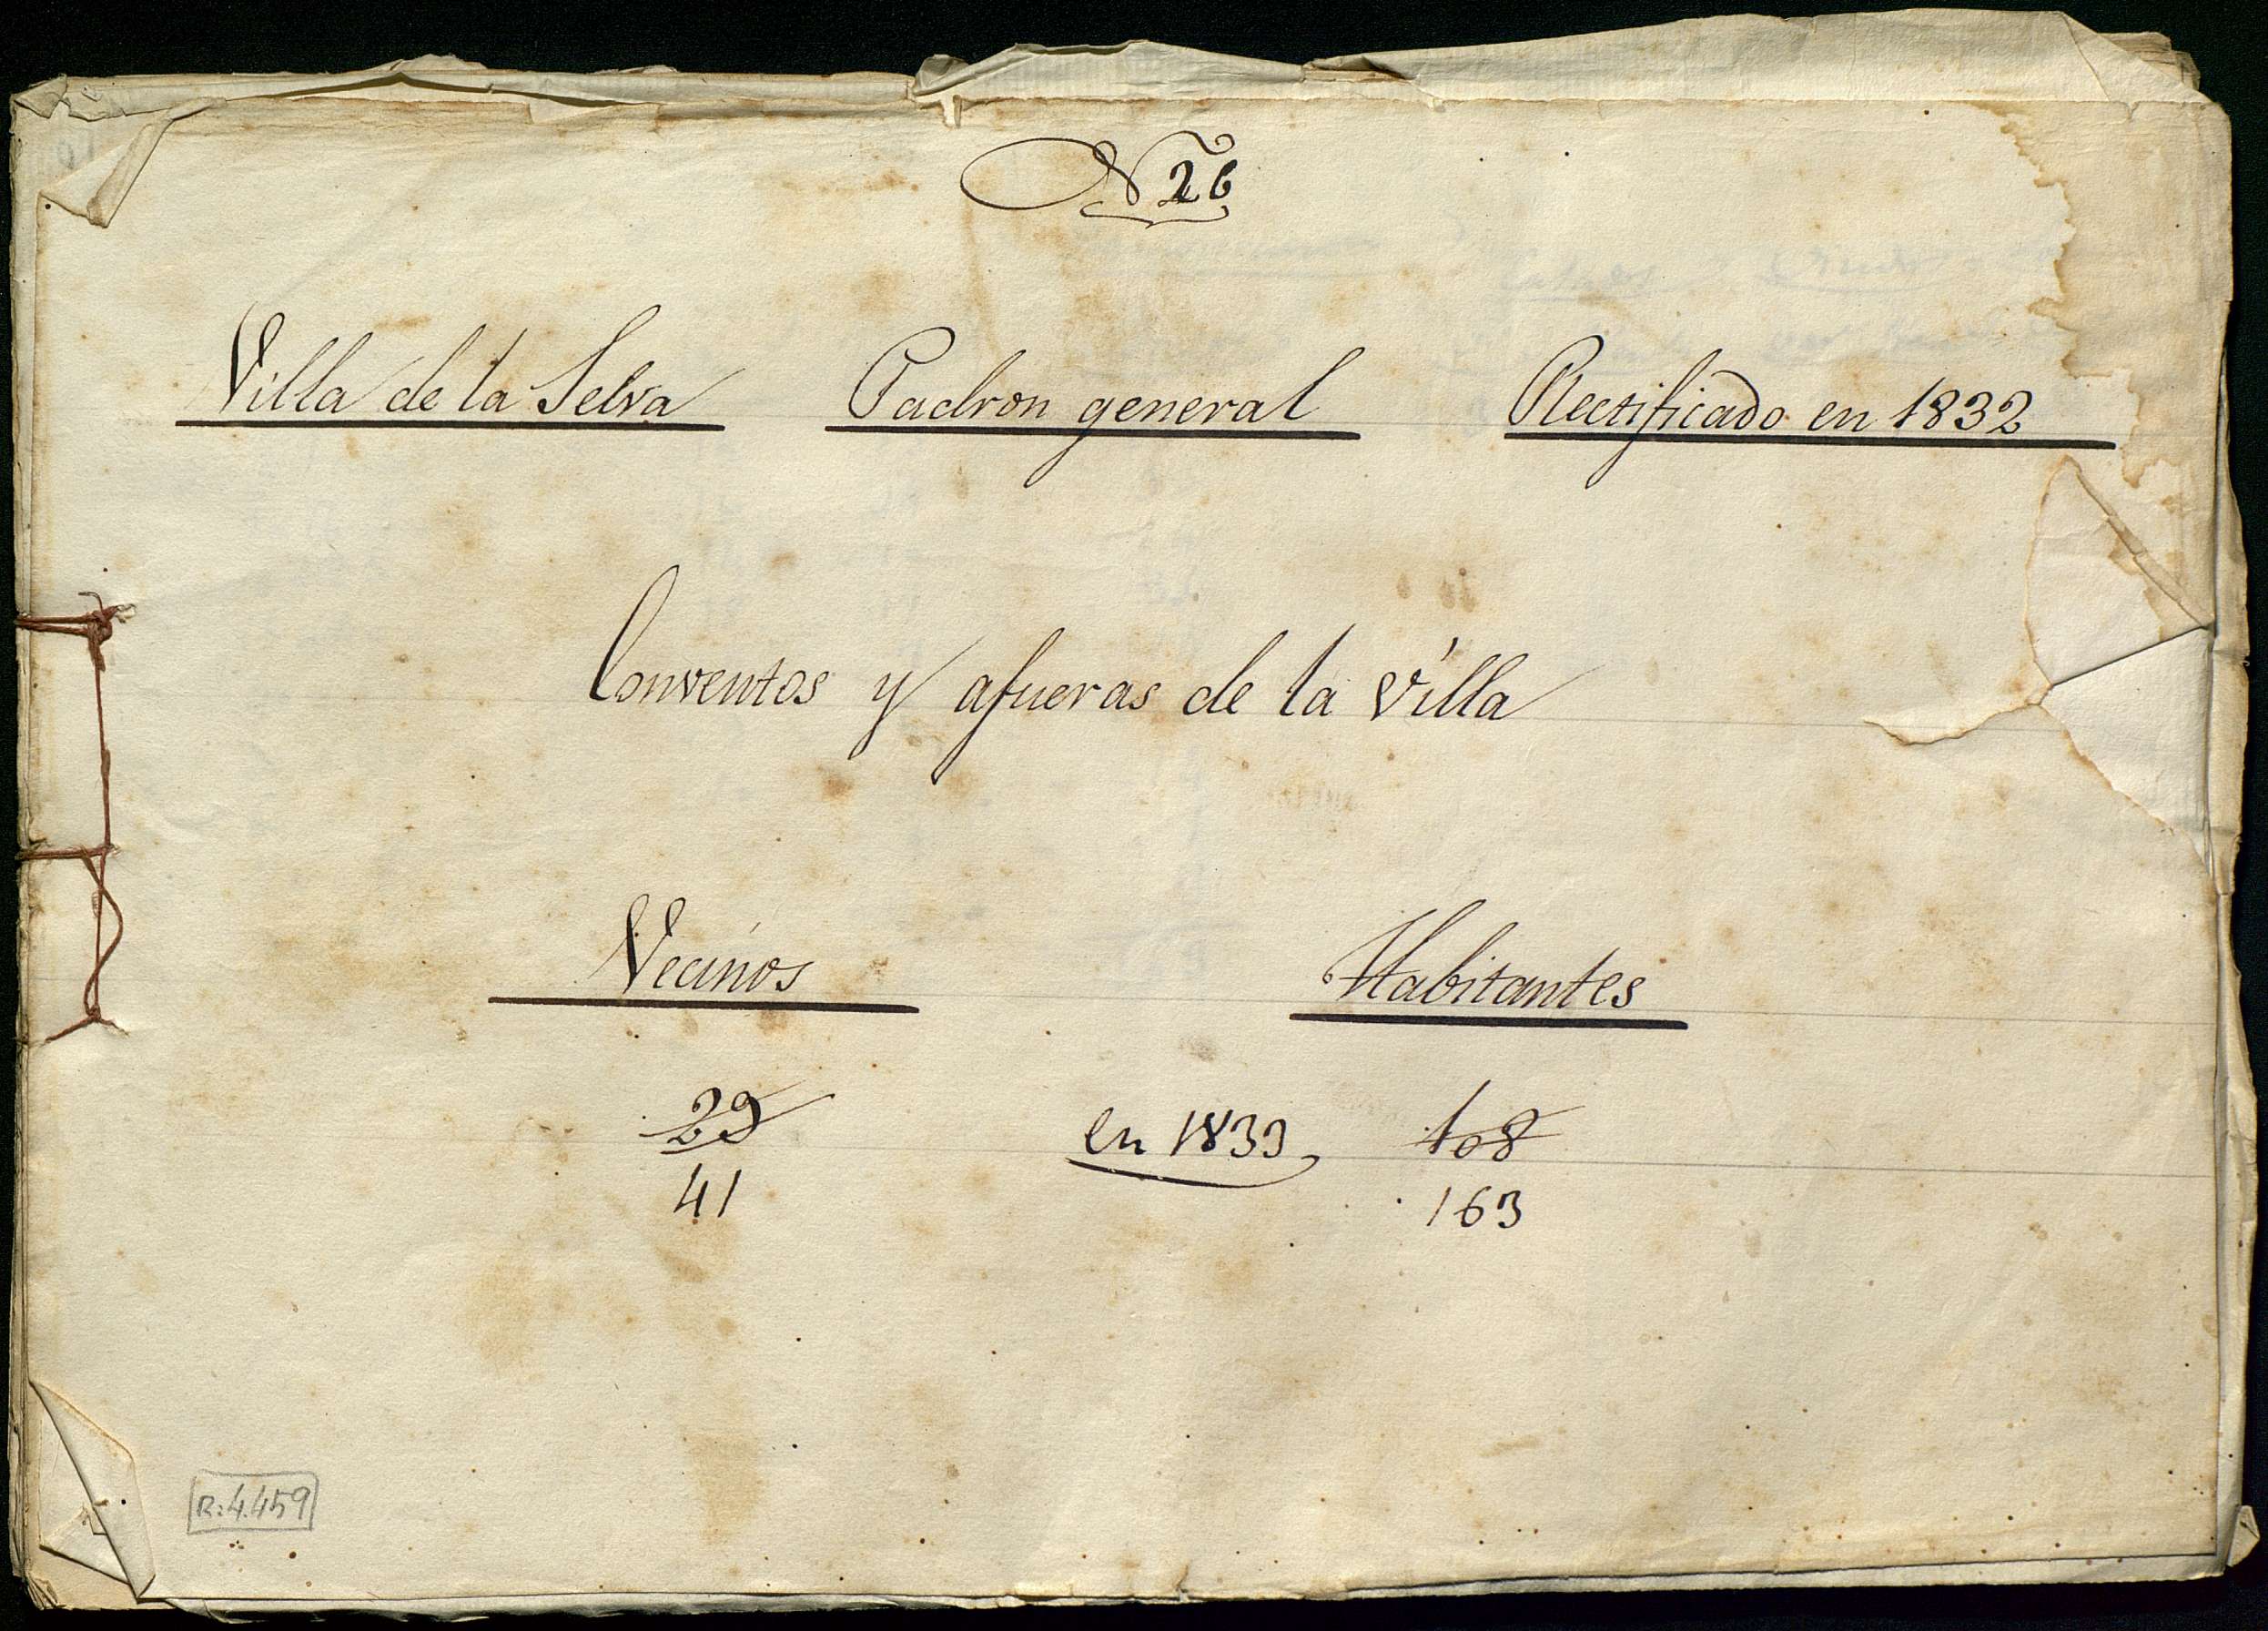 N 26
Villa de la Selva Padron general Rectificado en 1832
Conventos y afueras de la villa
Vecinos Habitantes
29 en 1833 108
41 163
R: 4.459